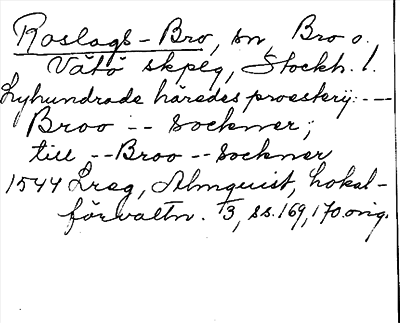 Roslags-Bro, sn, Bro o.
Vätö skplg, Stockh. l.
Lyhundrade häredes proesterij: --
Broo -- Sockner;
till -- Broo -- Sockner
1544 Lreg, Almquist, Lokal-
förvaltn. 1/3, ss. 169, 170. orig.